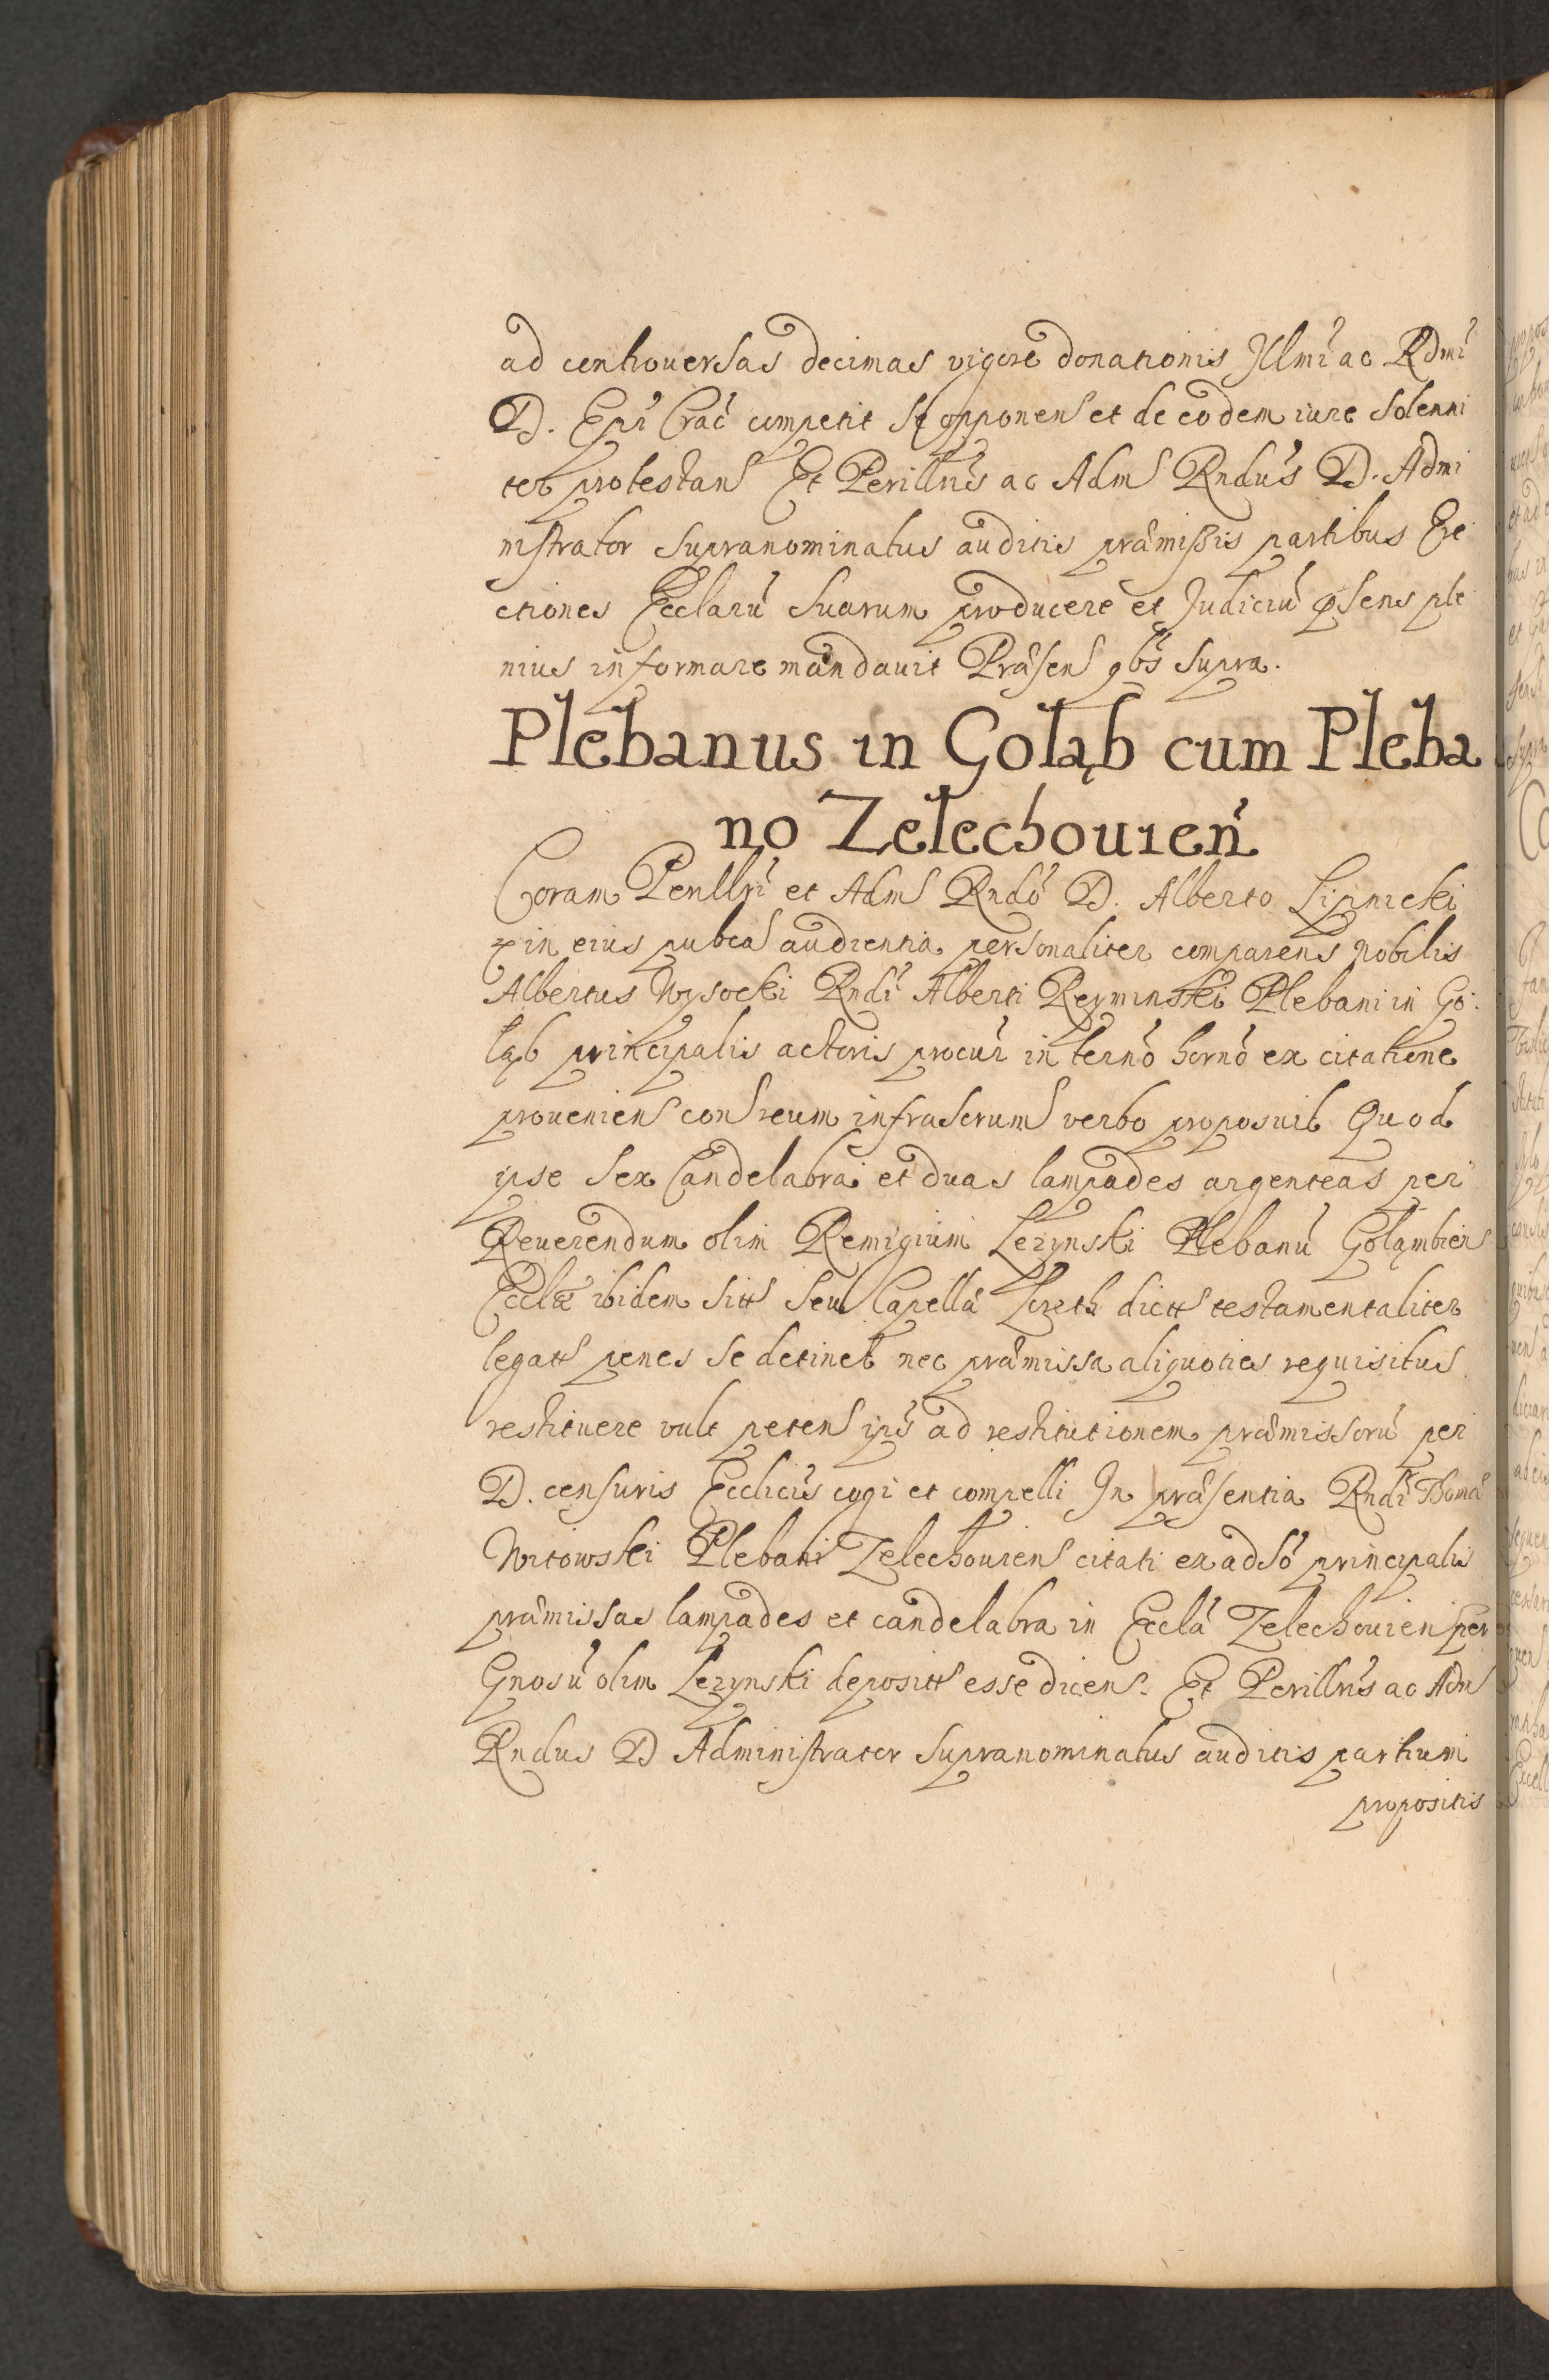 ad controuersas decimas vigore donationis Illmi ac Rdmi
D. Epi Crac competit se opponens et de eodem iure solenni
ter protestans Et Perillris ac Adm Rndus D. Admi
nistrator supranominatus auditis præmissis partibus Ere
ctiones Ecclarū suarum producere et Judiciū psens ple
nius informare mandauit Præsen qbs supra.
Plebanus in Goląb cum Pleba
no Zelechouien
Coram Perillri et Adm Rndo D. Alberto Lipnicki
in eius pubca audientia personaliter comparens nobilis
Albertus Wysocki Rndi Alberti Reyminski Plebani in Go
ląb principalis actoris procur in termo horno ex citatione
proueniens con reum infrascrum verbo proposuit Quod
ipse sex Candelabra et duas lampades argenteas per
Reuerendum olim Remigium Lezynski Plebanū Golambien
Ecclæ ibidem sitt seu Capellæ Loreth dictt testamentaliter
legatt penes se detinet nec præmissa aliquoties requisitus
restituere vult petens ips ad restitutionem præmissorū per
D. censuris Ecclicis cogi et compelli In præsentia Rndi Thomæ
Witowski Plebani Zelechouiens citati ex adso principalis
præmissas lampades et candelabra in Eccla Zelechouien per
Gnosū olim Lezynski depositt esse dicens. Et Perillris ac Adm
Rndus D Administrator supranominatus auditis partium
propositis